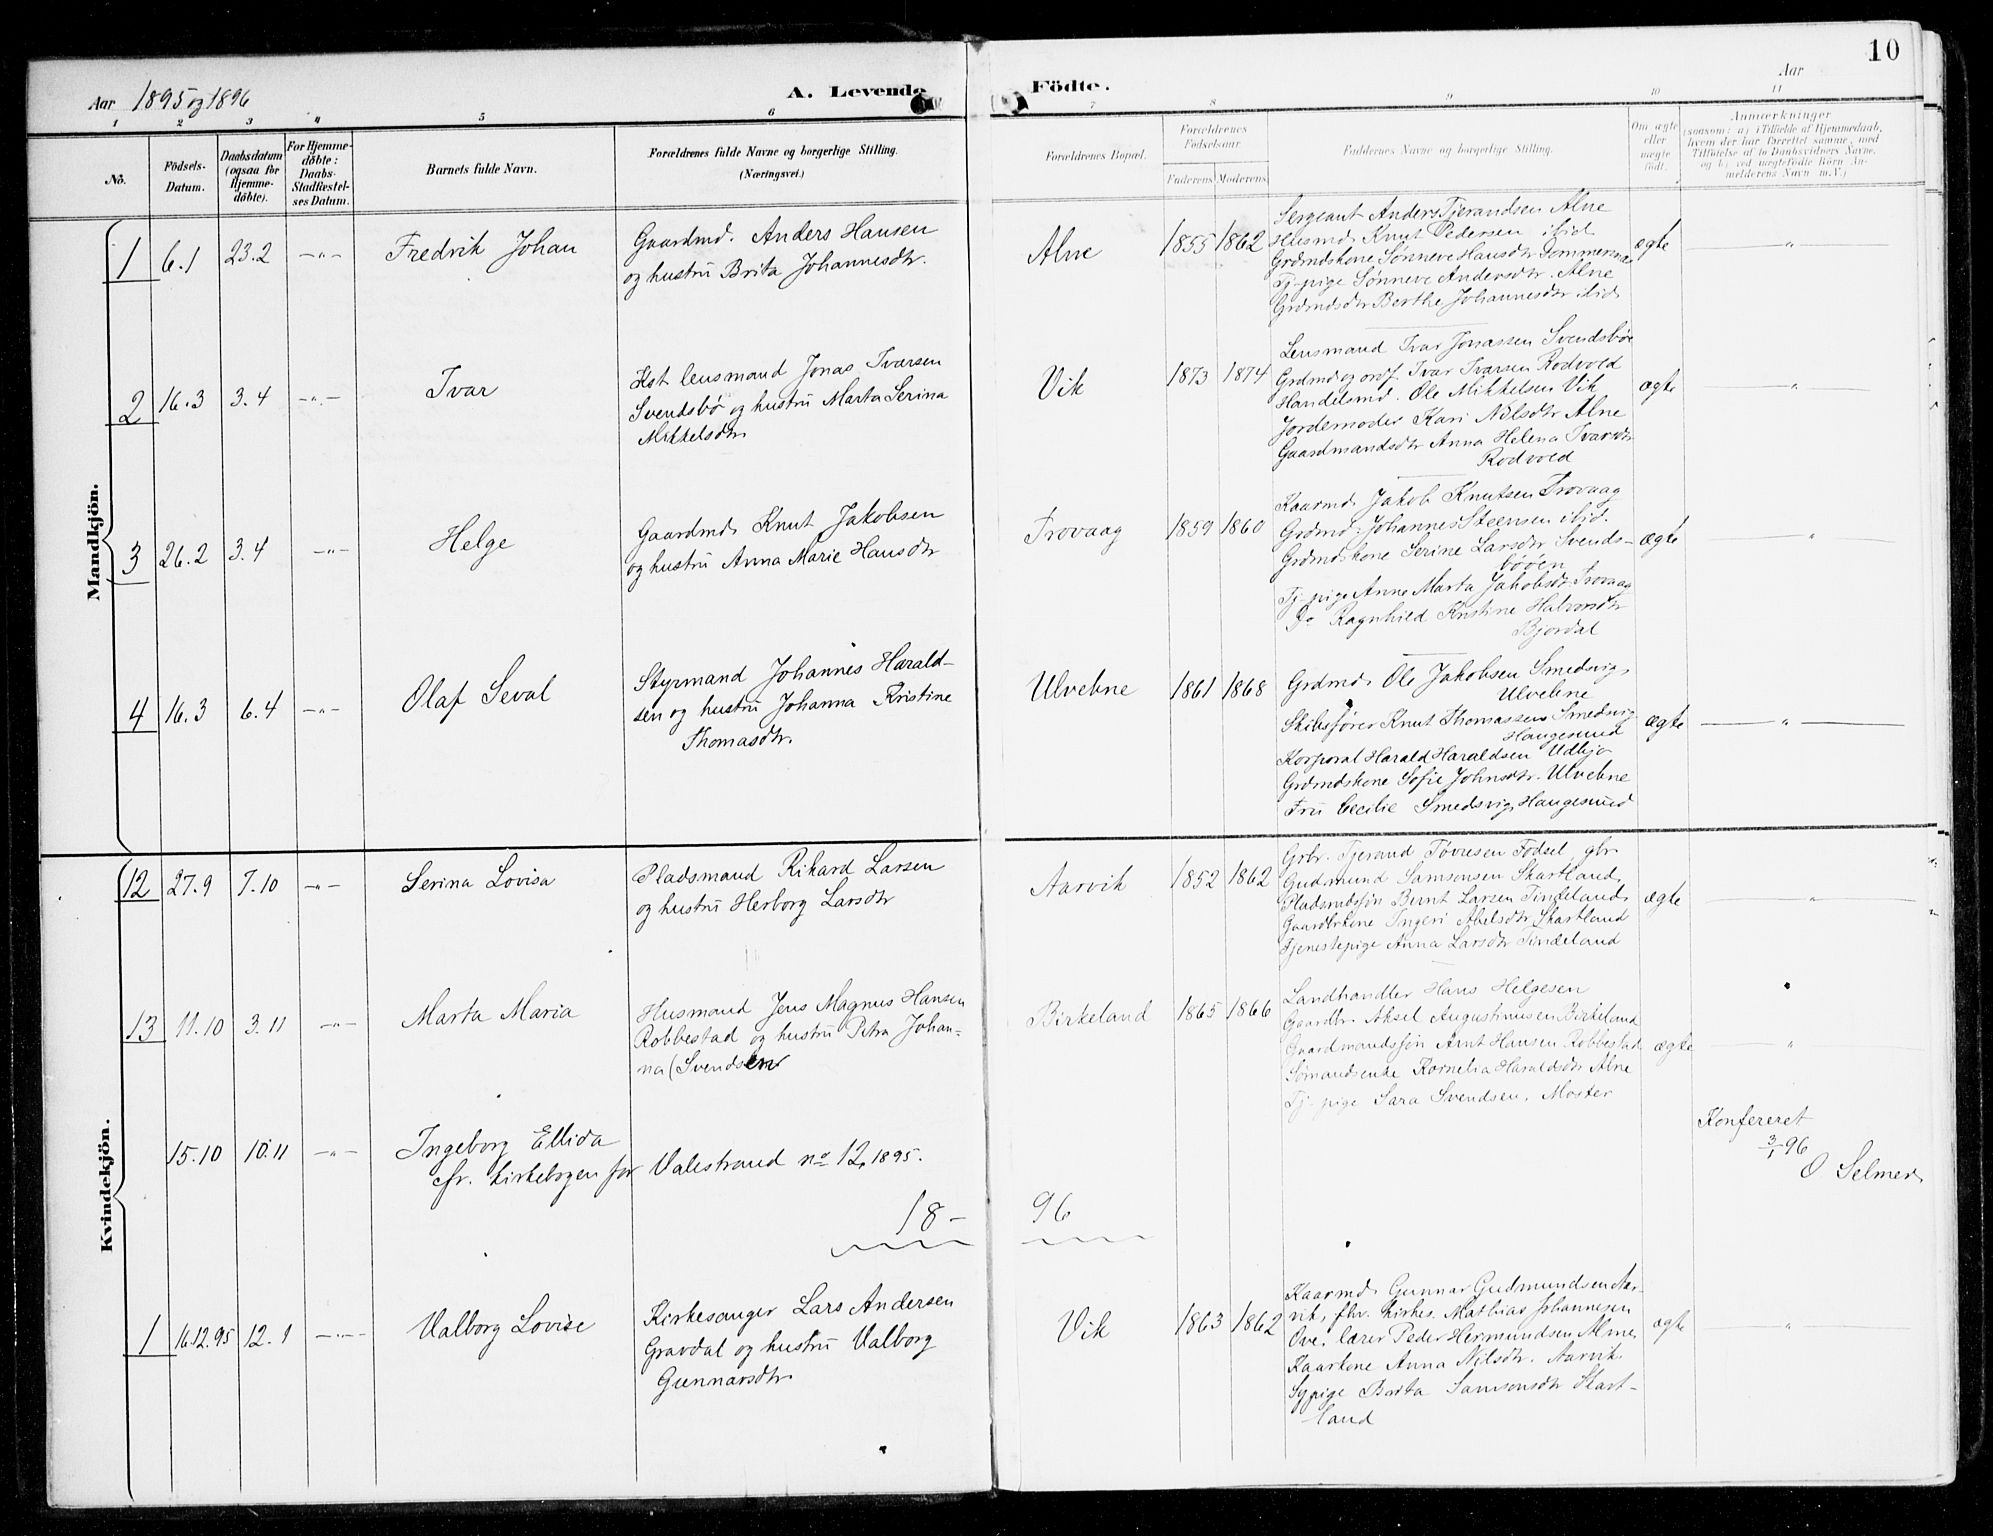 10
Aar 1895 og 1896
A. Levende
Födte.
Aar
1 2 3 4 5 6 7 8 9 10 11
No.
Födsels-
Datum.
Daabsdatum
(ogsaa for
Hjemme-
döbte).
For Hjemme-
döbte:
Daabs-
Stadfæstel-
ses Datum.
Barnets fulde Navn.
Forældrenes fulde Navne og borgerlige Stilling.
(Næringsvei.)
Forældrenes Bopæl.
Forældrenes
Födselsaar.
Faderens. Moderens.
Faddernes Navne og borgerlige Stilling.
Om ægte
eller
uægte
födt.
Anmærkninger
(saasom: a) i Tilfælde af Hjemmedaab,
hvem der har forrettet samme, med
Tilföielse af to Daabsvidners Navne,
og b) ved uægtefödte Börn An-
melderens Navn m.V.)
Mandkjön.
1 6.1 23.2 —"— Fredrik Johan
Gaardmd. Anders Hansen
og hustru Brita Johannesdtr.
Alne 1855 1862
Sergeant Anders Tjerandsen Alne
Husmd. Knut Pedersen ibid
Grdmdskone Sønneve Hansdtr Tommernæs
Tj-pige Sønneve Andersdtr. Alne
Grdmdsdtr Berthe Johannesdtr ibid.
ægte —"—
2 16.3 3.4 —"— Ivar
Kst lensmand Jonas Ivarsen
Svendsbø og hustru Marta Serina
Mikkelsdtr
Vik 1873 1874
Lensmand Ivar Jonassen Svendsbøe
Grdmd og ordf. Ivar Ivarsen Rodvold
Handelsmd. Ole Mikkelsen Vik
Jordemoder Kari Nilsdtr Alne
Gaardmandsdtr Anna Helena Ivarsdtr
Rodvold
ægte —"—
3 26.2 3.4 —"— Helge
Gaardmd. Knut Jakobsen
og hustru Anna Marie Hansdtr
Trovaag 1859 1860
Kaarmd. Jakob Knutsen Trovaag
Grdmd. Johannes Steensen ibid.
Grdmdskone Serine Larsdtr Svends-
bøen
Tj-pige Anne Marta Jakobsdtr Trovaag
Do Ragnhild Kristine Halvorsdtr
Bjordal
ægte —"—
4 16.3 6.4 —"— Olaf Seval
Styrmand Johannes Harald-
sen og hustru Johanna Kristine
Thomasdtr.
Ulvebne 1861 1868
Grdmd. Ole Jakobsen Smedsvig,
Ulvebne
Skibsfører Knut Thomassen Smedsvig
Haugesund
Korporal Harald Haraldsen Udbjo
Grdmdskone Sofie Johnsdtr. Ulvebne
Fru Cecilie Smedsvig, Haugesund
ægte —"—
Kvindekjön.
12 27.9 7.10 —"— Serina Lovisa
Pladsmand Rikard Larsen
og hustru Herborg Larsdtr
Aarvik 1852 1862
Grbr. Tjerand Tøvresen Fodsel, gbr.
Gudmund Samsonsen Skartland,
Pladsmdssøn Bernt Larsen Tindeland,
Gaardbrkone Ingeri Abelsdtr Skartland
Tjenestepige Anna Larsdtr Tindeland
ægte —"—
13 11.10 3.11 —"— Marta Maria
Husmand Jens Magnus Hansen
Robbestad og hustru Petra Johan-
na (Svendsen
Birkeland 1865 1866
Landhandler Hans Helgesen
Gaardbr Aksel Augustinusen Birkeland
Gaardmandssøn Arnt Hansen Robbestad
Sømandsenke Kornelia Haraldsdtr Alne
Tj-pige Sara Svendsen, Moster
ægte —"—
15.10 10.11 —"— Ingeborg Ellida
cfr. kirkebogen for Valestrand no 12, 1895.
Konfereret
3/1 96
O. Selmer
18 — 96
1 16.12.95 12.1 —"— Valborg Lovise
Kirkesanger Lars Andersen
Gravdal og hustru Valborg
Gunnarsdtr.
Vik 1863 1862
Kaarmd. Gunnar Gudmundsen Aar-
vik, fhv. kirkes. Mathias Johannesen
Ove, lærer Peder Hermundsen Alne,
Kaarkone Anna Nilsdtr. Aarvik
Sypige Berta Samsonsdtr Skart-
land
ægte —"—